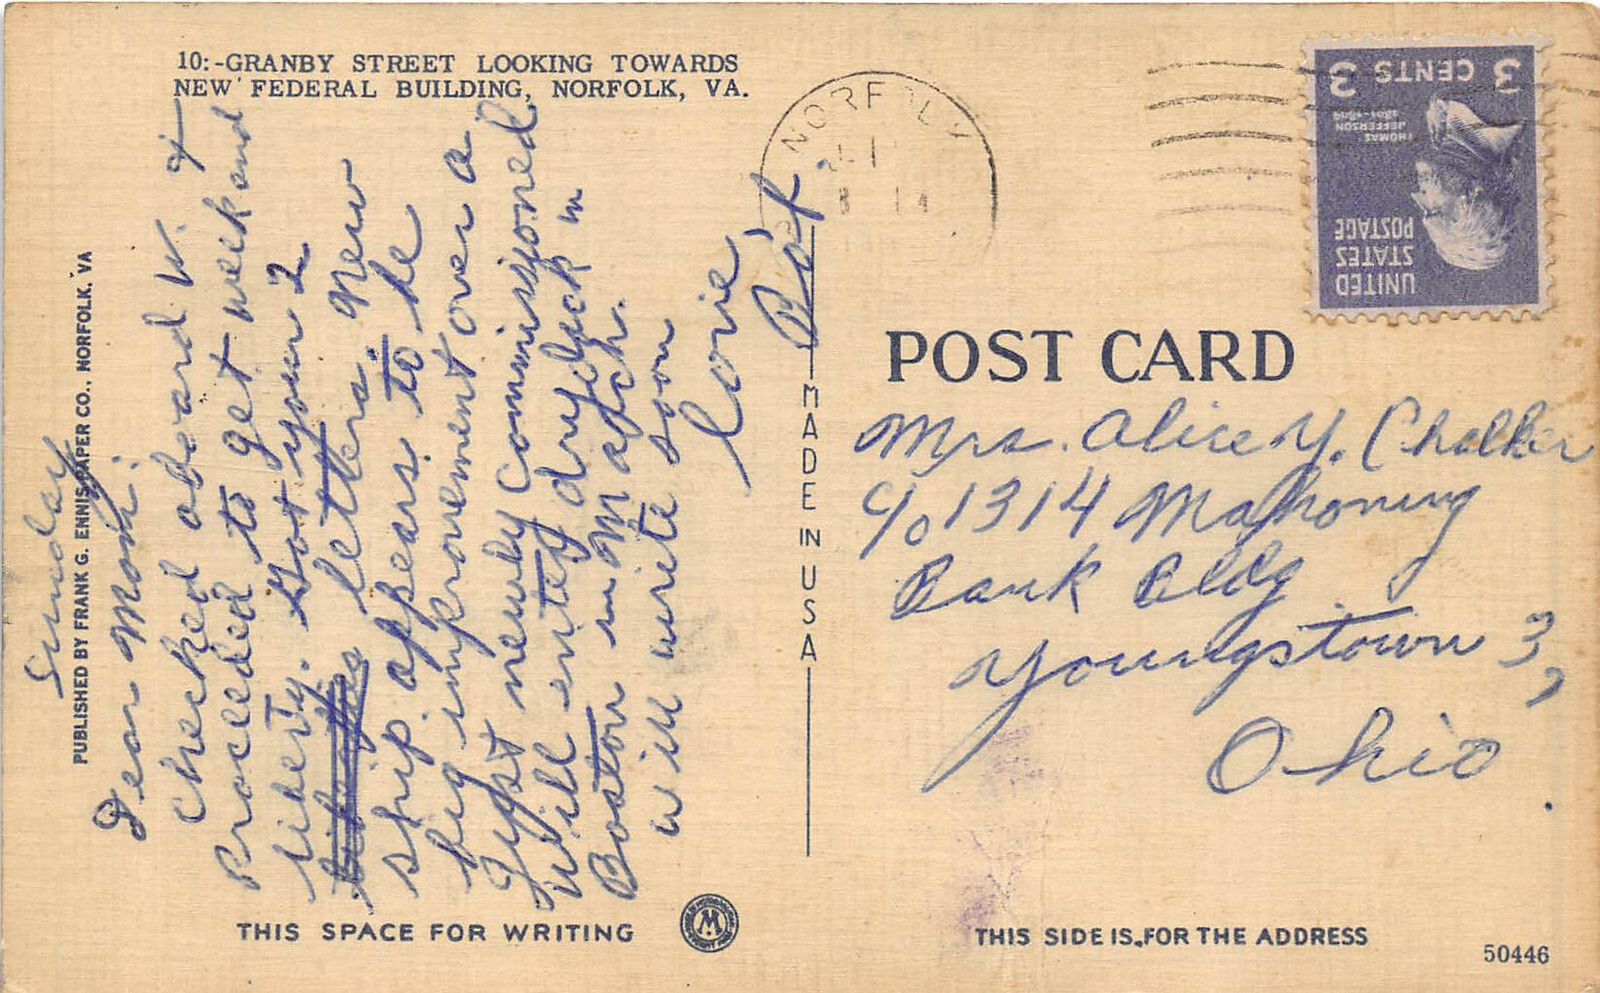 10:-GRANBY STREET LOOKING TOWARDS
NEW FEDERAL BUILDING, NORFOLK, VA.
PUBLISHED BY FRANK G. ENNIS PAPER CO., NORFOLK, VA
Sunday
Dear Mom:
Checked aboard W. &
Proceeded to get weekend
liberty. Got your 2
letters. New
ship appears to be
big improvement over a
Just newly Commissioned
Will enter drydock in
Boston in March.
will write soon
love
THIS SPACE FOR WRITING
MADE IN USA
NORFOLK
UNITED
STATES
POSTAGE
THOMAS
JEFFERSON
1801-1809
3 CENTS 3
POST CARD
Mrs. Alice Y. Chalker
c/o 1314 Mahoning
Bank Bldg
Youngstown 3,
Ohio.
THIS SIDE IS FOR THE ADDRESS
50446